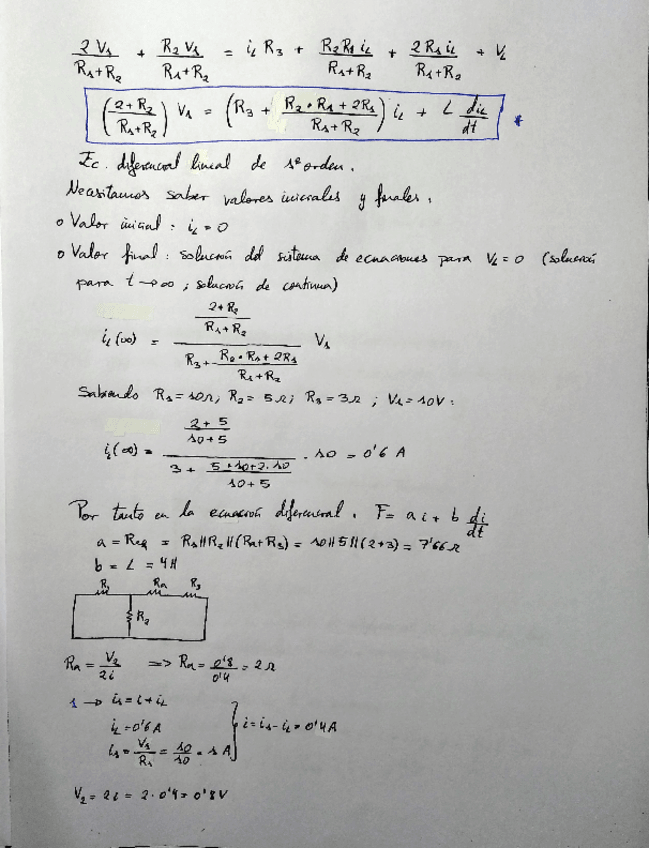 2 V₁ / (R₁+R₂) + R₂ V₁ / (R₁+R₂) = i_L R₃ + R₂ R₁ i_L / (R₁+R₂) + 2 R₁ i_L / (R₁+R₂) + V_L
((2+R₂) / (R₁+R₂)) V₁ = (R₃ + (R₂ • R₁ + 2R₁) / (R₁+R₂)) i_L + L di_L/dt *
Ec. diferencial lineal de 1º orden.
Necesitamos saber valores iniciales y finales.
o Valor inicial : i_L = 0
o Valor final : solución del sistema de ecuaciones para V_L = 0 (solución
para t → ∞ ; solución de continua)
i_L (∞) = ((2+R₂) / (R₁+R₂)) / (R₃ + (R₂ • R₁ + 2R₁) / (R₁+R₂)) V₁
Sabiendo R₁ = 10Ω, R₂ = 5Ω; R₃ = 3Ω ; V₁ = 10V :
i_L(∞) = ((2+5) / (10+5)) / (3 + (5•10+2·10) / (10+5)) · 10 = 0'6 A
Por tanto en la ecuación diferencial. F = a i + b di/dt
a = Req = R₁ // R₂ // (Ra+R₃) = 10 // 5 // (2+3) = 7'66 Ω
b = L = 4H
R₁ Ra R₃
R₂
Ra = V₂ / 2i => Ra = 0'8 / 0'4 = 2 Ω
1 → i₁ = i + i_L
i_L = 0'6 A
i₁ = V₁ / R₁ = 10 / 10 = 1 A } i = i₁ - i_L = 0'4A
V₂ = 2i = 2 · 0'4 = 0'8V